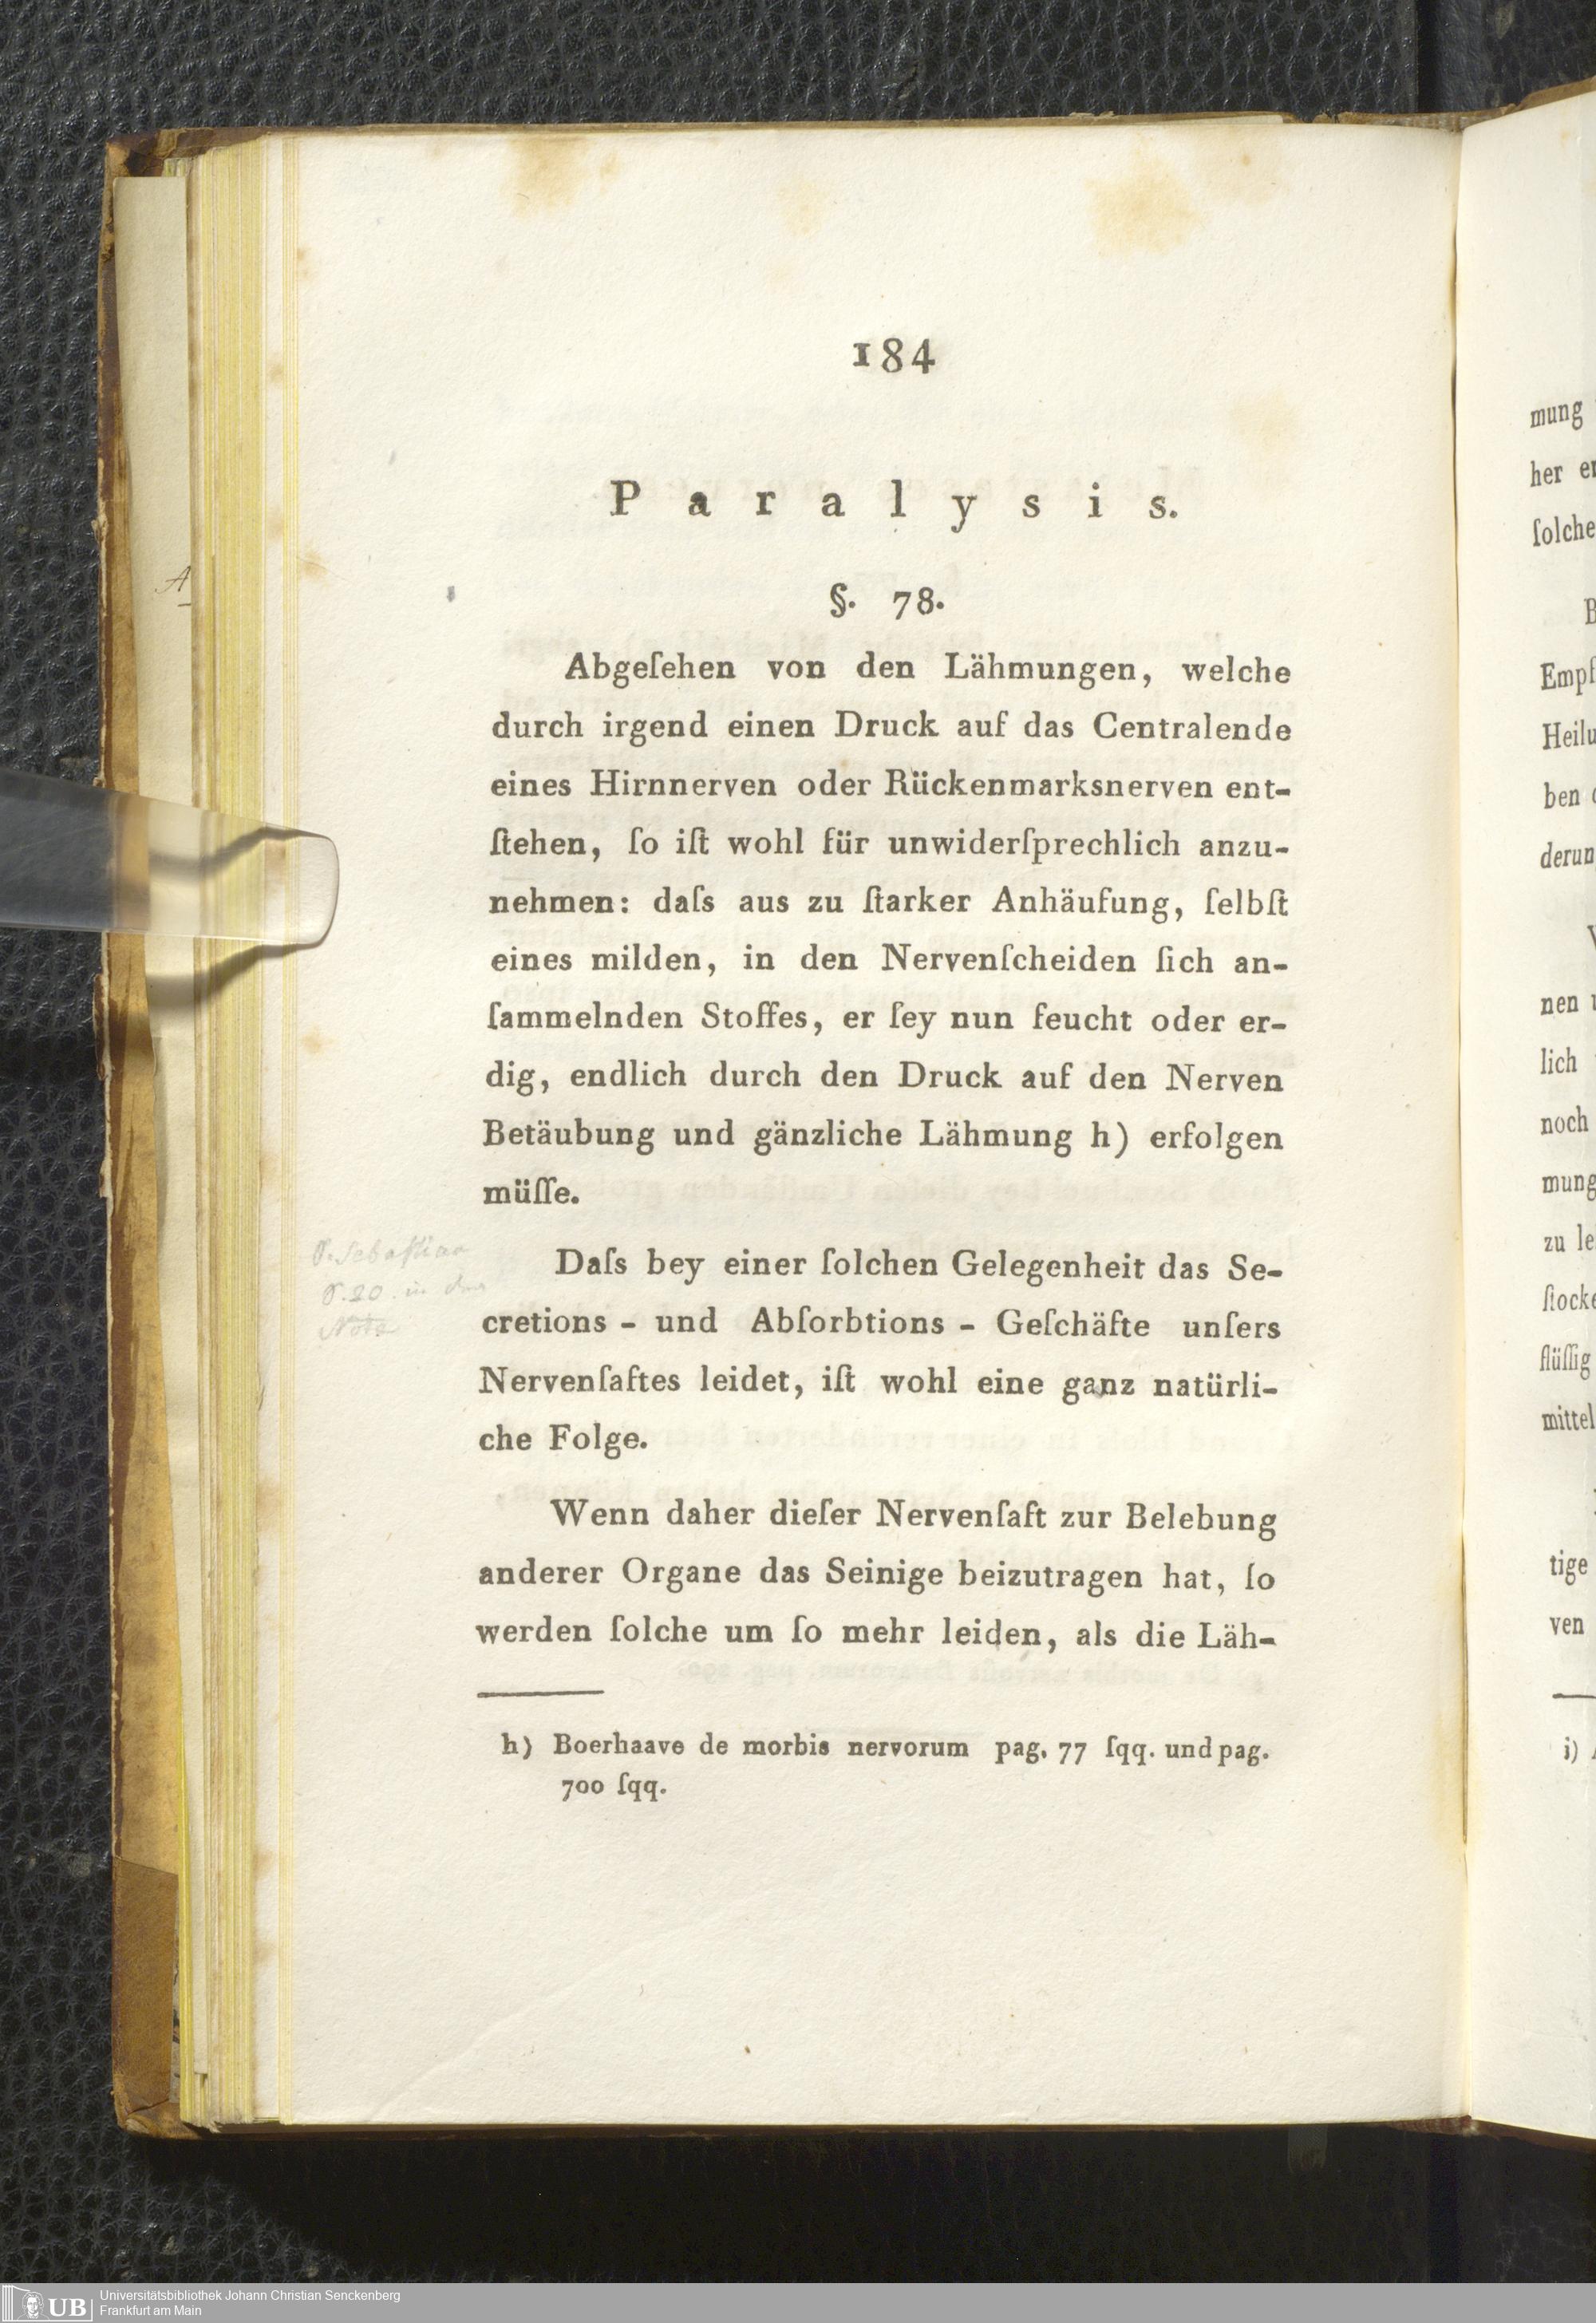 184
Paralysis.
§. 78.
Abgeſehen von den Lähmungen, welche
durch irgend einen Druck auf das Centralende
eines Hirnnerven oder Rückenmarksnerven ent-
ſtehen, ſo iſt wohl für unwiderſprechlich anzu-
nehmen: daſs aus zu ſtarker Anhäufung, ſelbſt
eines milden, in den Nervenſcheiden ſich an-
ſammelnden Stoffes, er ſey nun feucht oder er-
dig, endlich durch den Druck auf den Nerven
Betäubung und gänzliche Lähmung h) erfolgen
müſſe.
Daſs bey einer ſolchen Gelegenheit das Se-
cretions - und Abſorbtions - Geſchäfte unſers
Nervenſaftes leidet, iſt wohl eine ganz natürli-
che Folge.
Wenn daher dieſer Nervenſaft zur Belebung
anderer Organe das Seinige beizutragen hat, ſo
werden ſolche um ſo mehr leiden, als die Läh-
h) Boerhaave de morbis nervorum pag. 77 ſqq. und pag.
700 ſqq.
A
Sebaſtian
20. in der
Nota
mung
her
ſolche
nen
lich
noch
mung
zu
flüſſig
mittel
tige
ven
i)
UB
Universitätsbibliothek Johann Christian Senckenberg
Frankfurt am Main